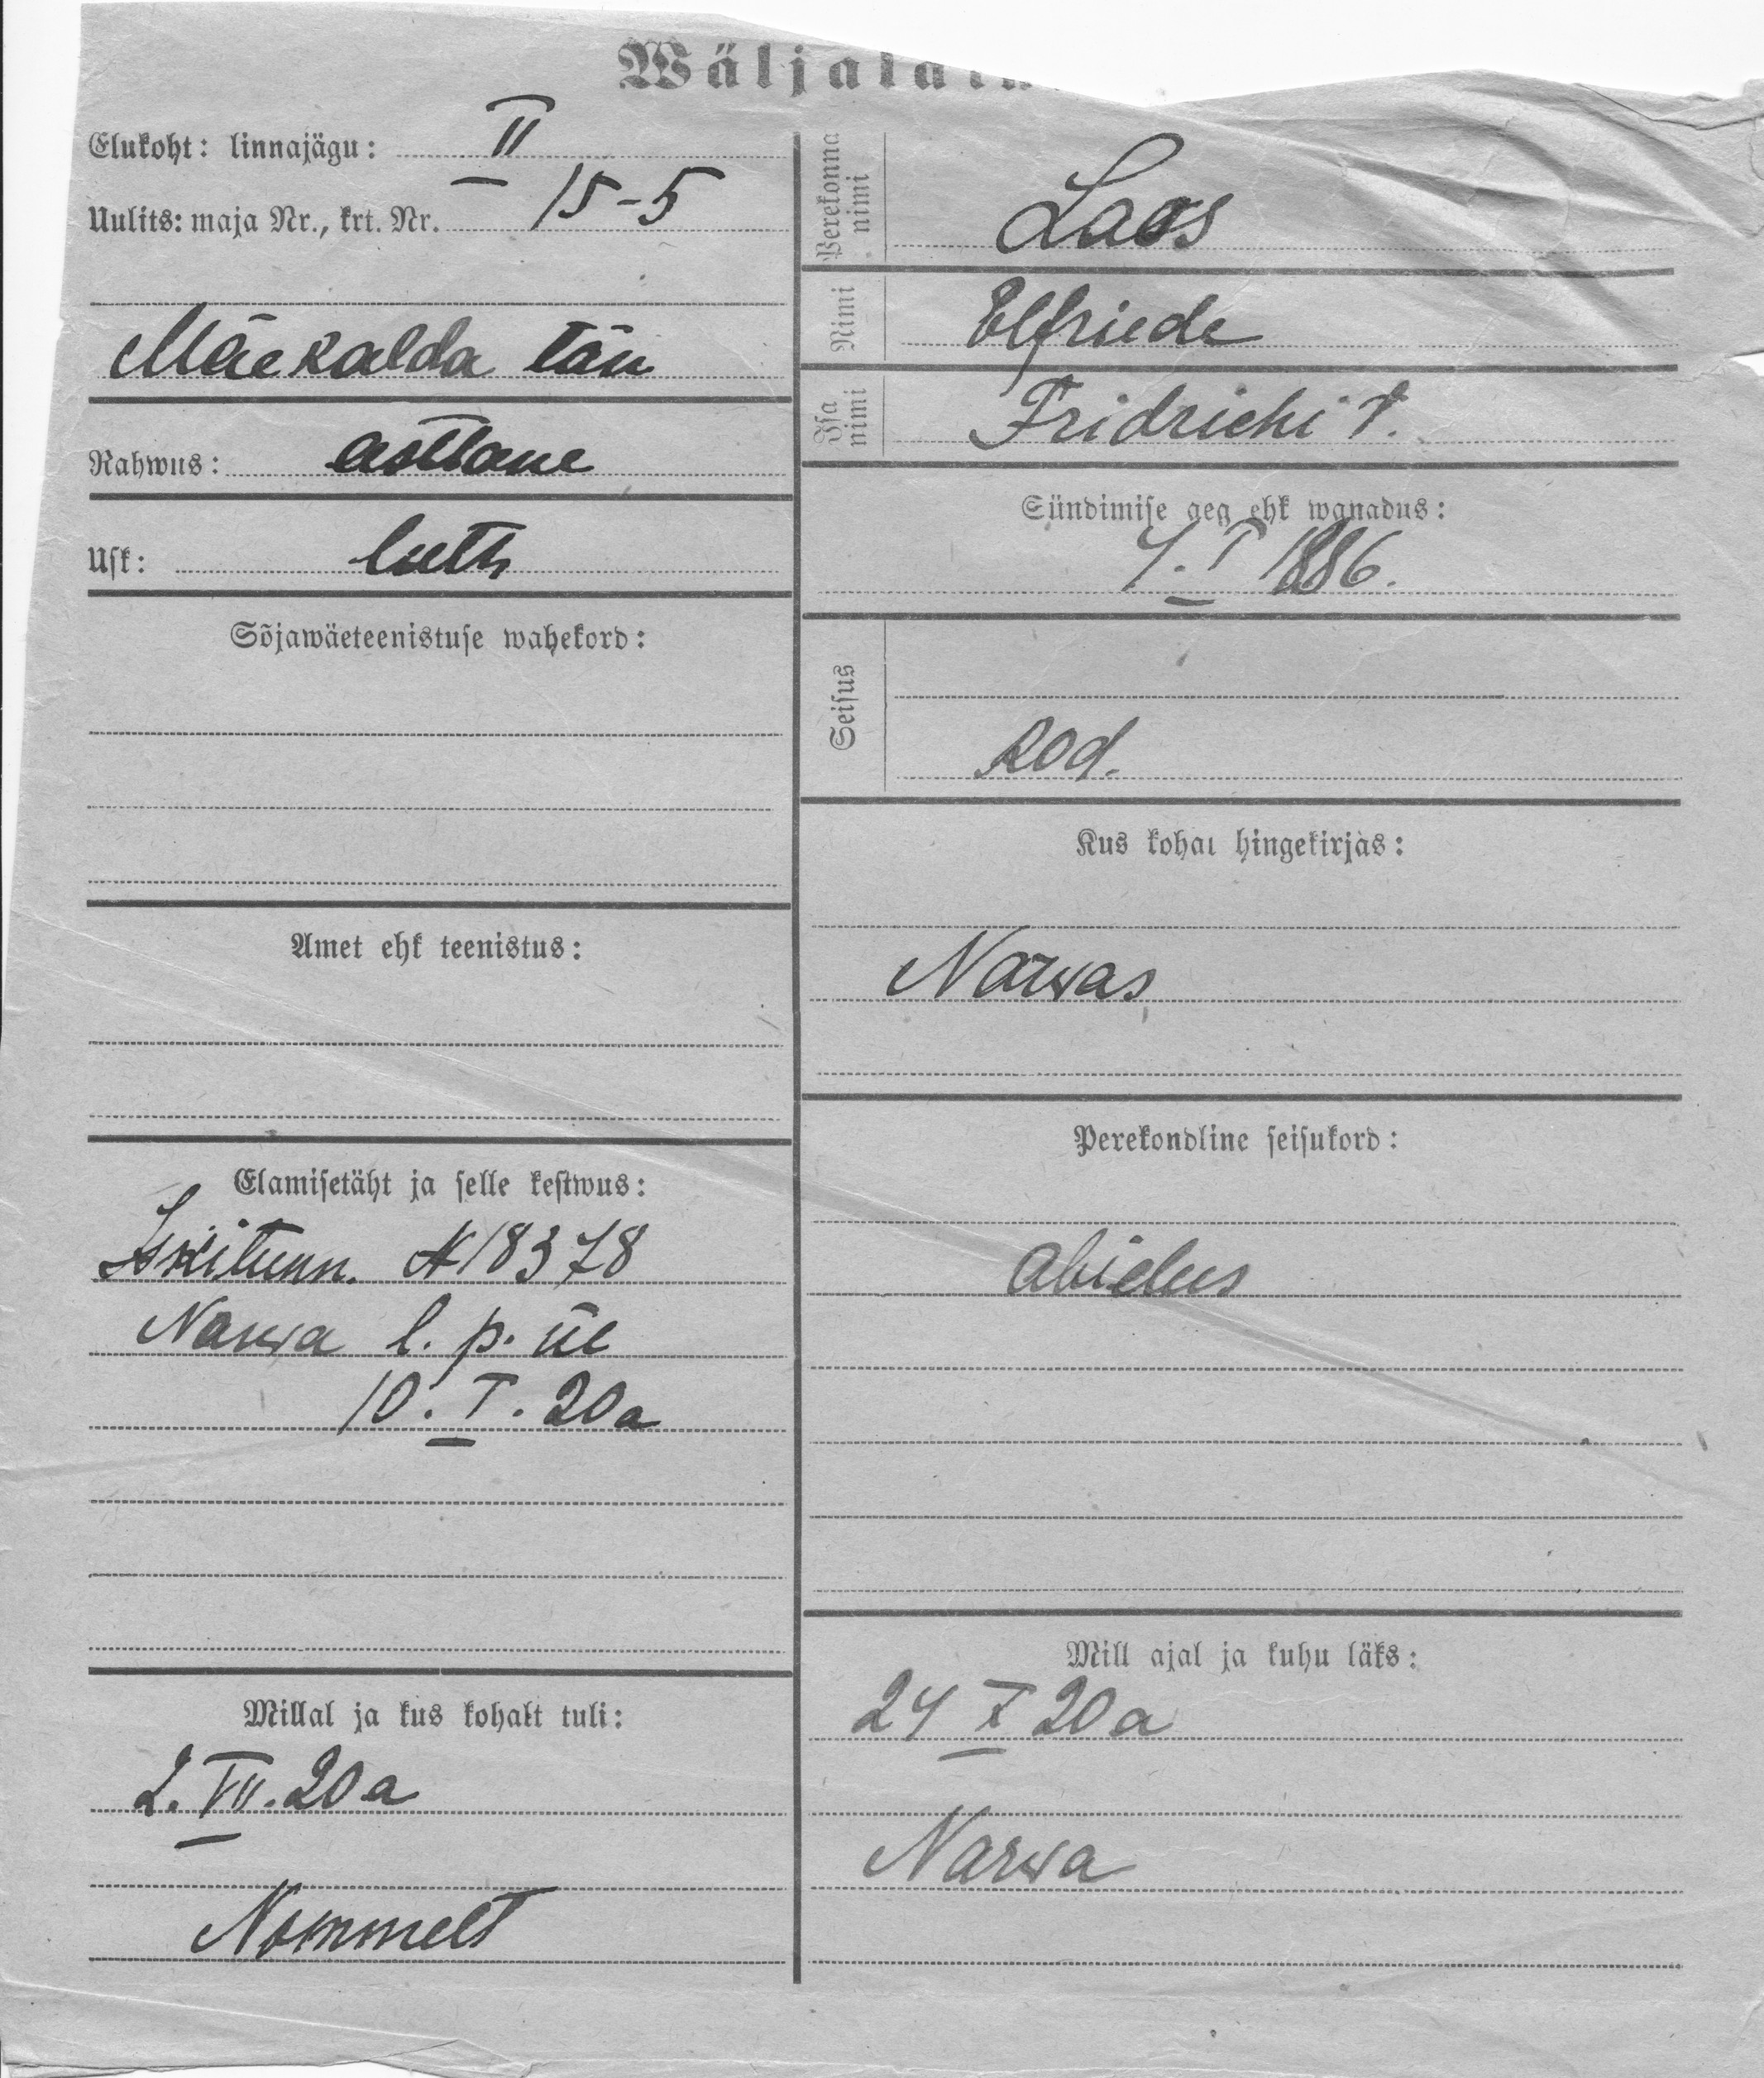 Wäljala
Elukoht: linnajägu: II
Uulits: maja Nr., krt. Nr. 15-5
Mäekalda tän
Rahwus: eestlane
Usk: luth
Sõjawäeteenistuse wahekord:
Amet ehk teenistus:
Elamisetäht ja selle kestwus:
Isikitunn. № 18378
Narwa l. p. ül
10. I. 20 a
Millal ja kus kohalt tuli:
2. VII. 20 a
Nõmmelt
Perekonna nimi
Laos
Nimi
Elfriede
Isa nimi
Fridrichi t.
Sündimise aeg ehk wanadus:
I 1886.
Seisus
kod.
Kus kohal hingekirjas:
Narwas
Perekondline seisukord:
abielus
Mill ajal ja kuhu läks:
24 X 20 a
Narwa